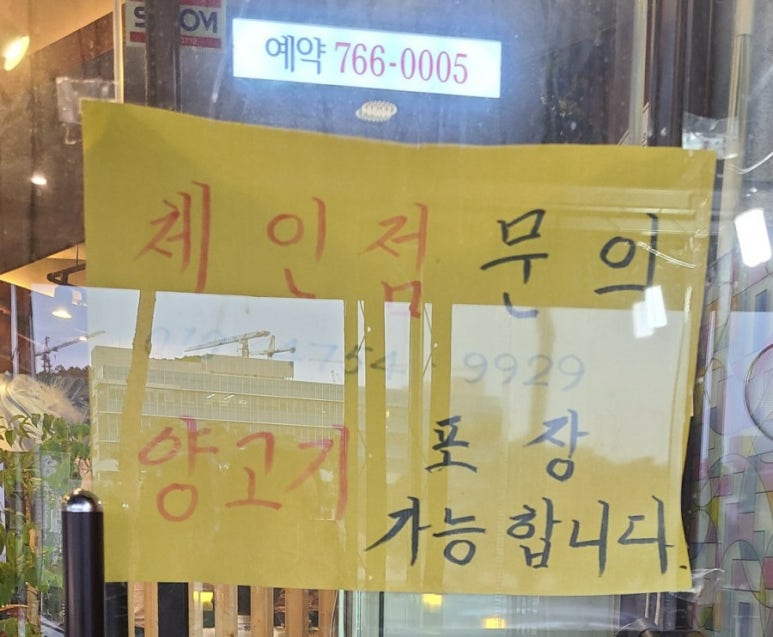 예약 766-0005
체인점 문의
9929
양고기 포장
가능합니다.